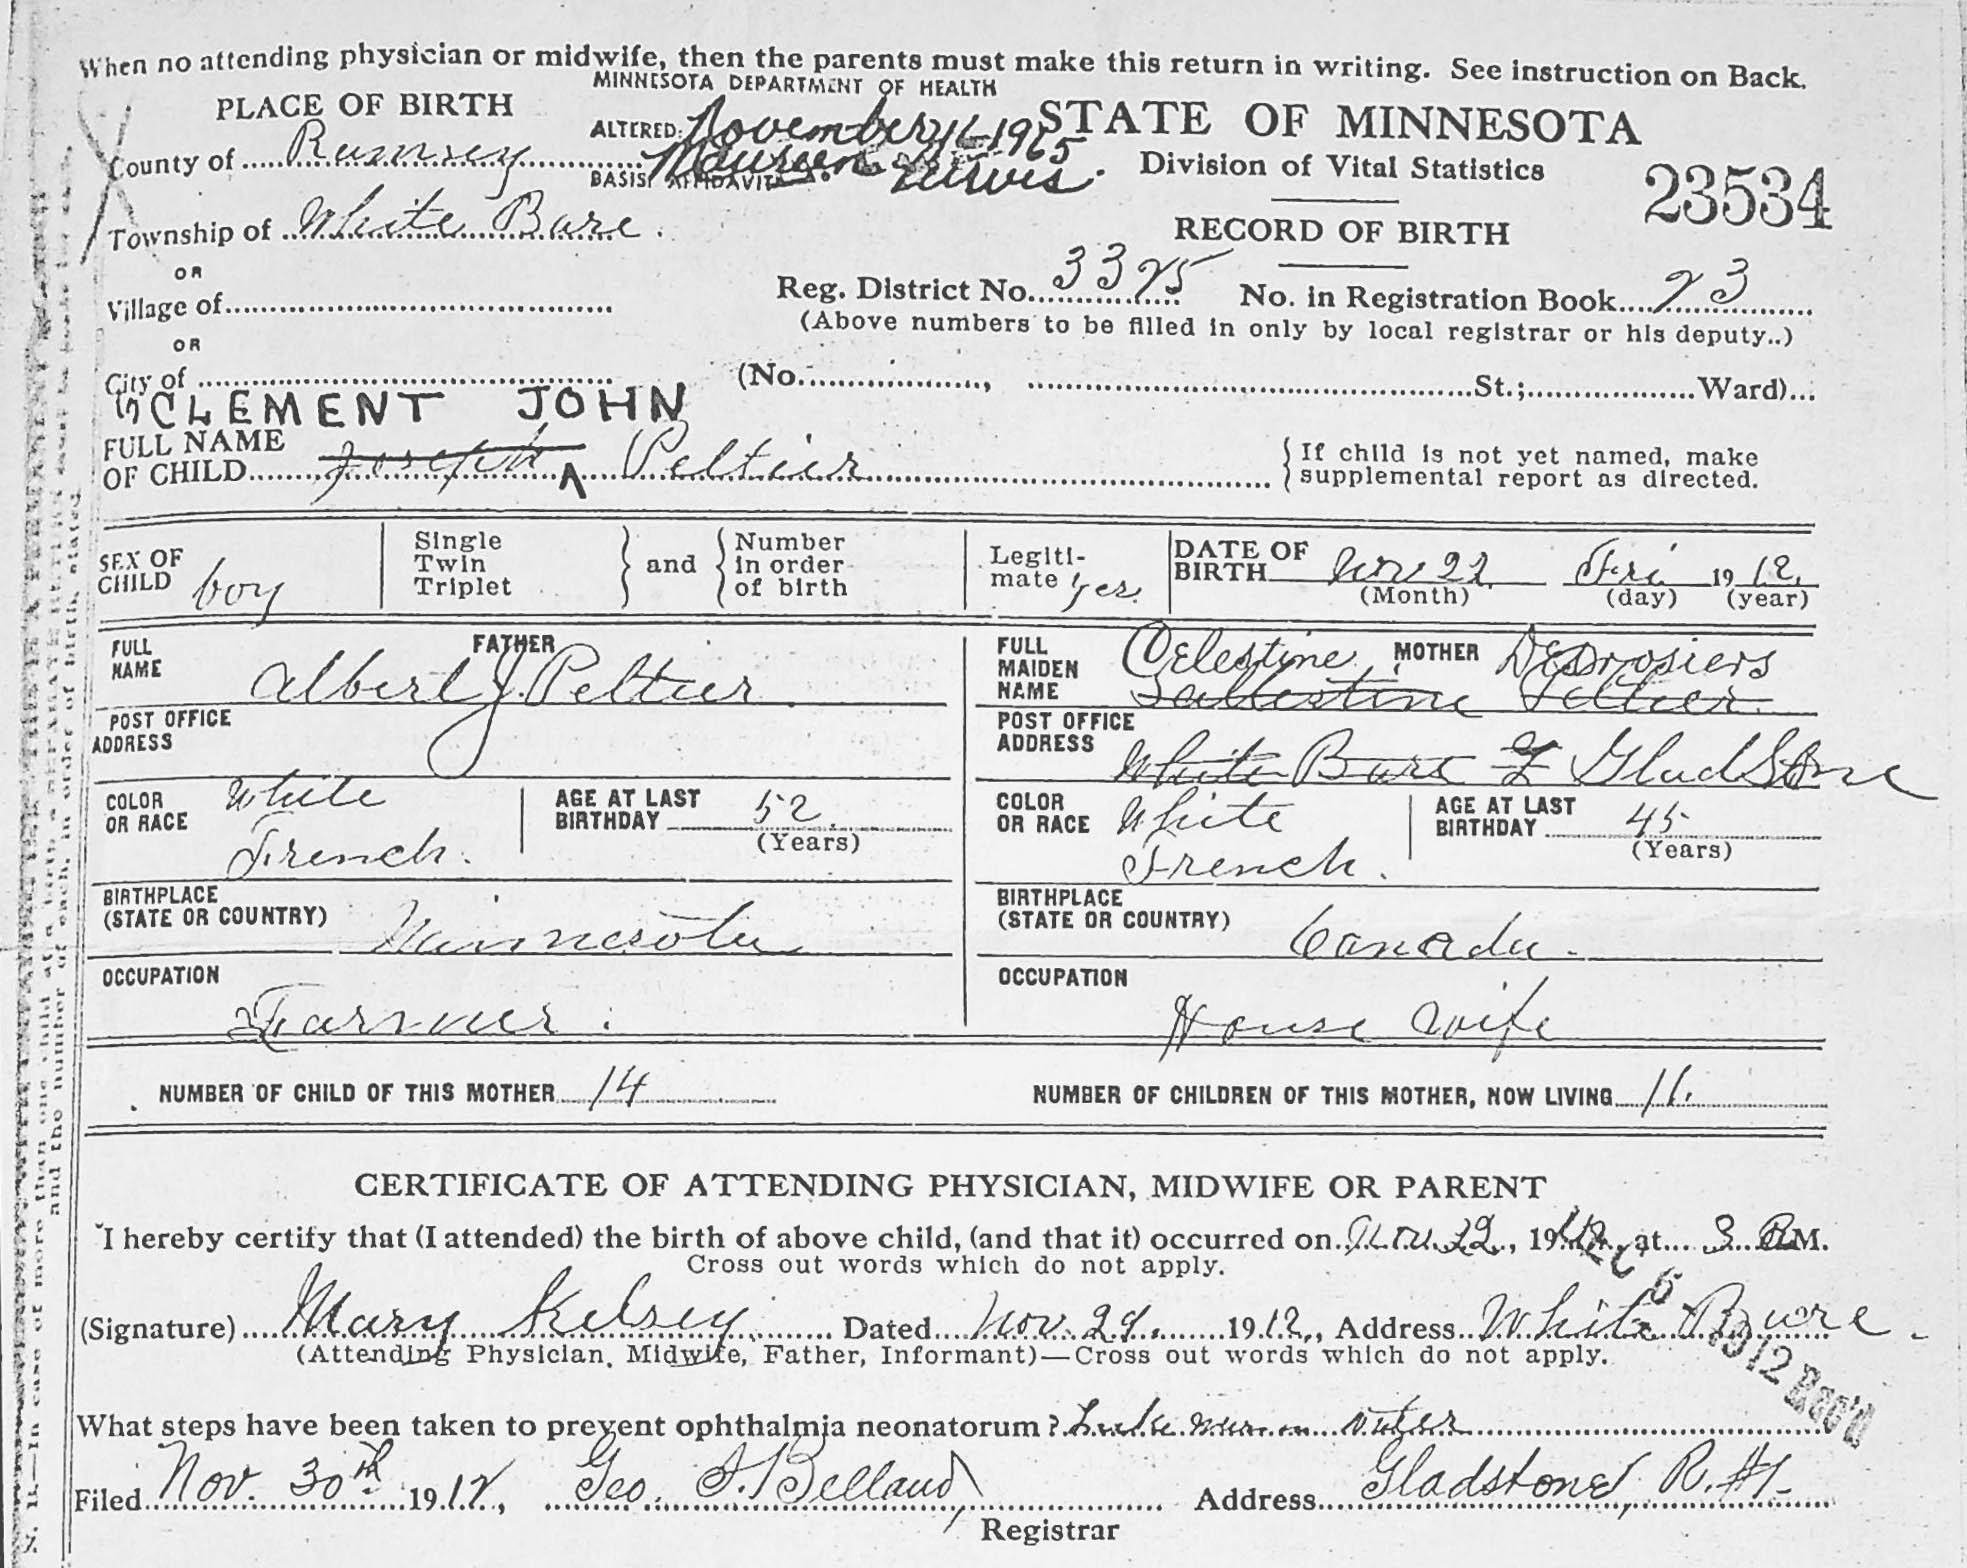 When no attending physician or midwife, then the parents must make this return in writing. See instruction on Back.
MINNESOTA DEPARTMENT OF HEALTH
PLACE OF BIRTH
STATE OF MINNESOTA
ALTERED: November 16-1965
County of Ramsey
BASIS: AFFIDAVIT Maureen
Division of Vital Statistics
23534
Township of White Bare.
RECORD OF BIRTH
OR
Reg. District No. 3325 No. in Registration Book 23
Village of
(Above numbers to be filled in only by local registrar or his deputy..)
OR
City of (No. , St.; Ward)...
CLEMENT JOHN
FULL NAME
OF CHILD Joseph ^ Peltier
{If child is not yet named, make
supplemental report as directed.
SEX OF CHILD boy
Single
Twin
Triplet
} and {
Number
in order
of birth
Legiti-
mate yes.
DATE OF
BIRTH Nov 22 Fri 1912.
(Month) (day) (year)
FULL NAME FATHER Albert J. Peltier
FULL MAIDEN NAME Celestine MOTHER DEsrosiers
POST OFFICE ADDRESS
POST OFFICE ADDRESS White Bare Gladstone
COLOR OR RACE White French.
AGE AT LAST BIRTHDAY 52.
(Years)
COLOR OR RACE White French.
AGE AT LAST BIRTHDAY 45
(Years)
BIRTHPLACE
(STATE OR COUNTRY) Minnesota
BIRTHPLACE
(STATE OR COUNTRY) Canada.
OCCUPATION Farmer.
OCCUPATION House wife
NUMBER OF CHILD OF THIS MOTHER 14
NUMBER OF CHILDREN OF THIS MOTHER, NOW LIVING 11.
CERTIFICATE OF ATTENDING PHYSICIAN, MIDWIFE OR PARENT
I hereby certify that (I attended) the birth of above child, (and that it) occurred on Nov. 22, 1912, at 3 P.M.
Cross out words which do not apply.
DEC 5 1912 Rec'd
(Signature) Mary Kelsey Dated Nov. 29. 1912, Address White Bare.
(Attending Physician, Midwife, Father, Informant)—Cross out words which do not apply.
What steps have been taken to prevent ophthalmia neonatorum? water
Filed Nov. 30th 1912, Geo. Belland, Address Gladstone, R. #1
Registrar